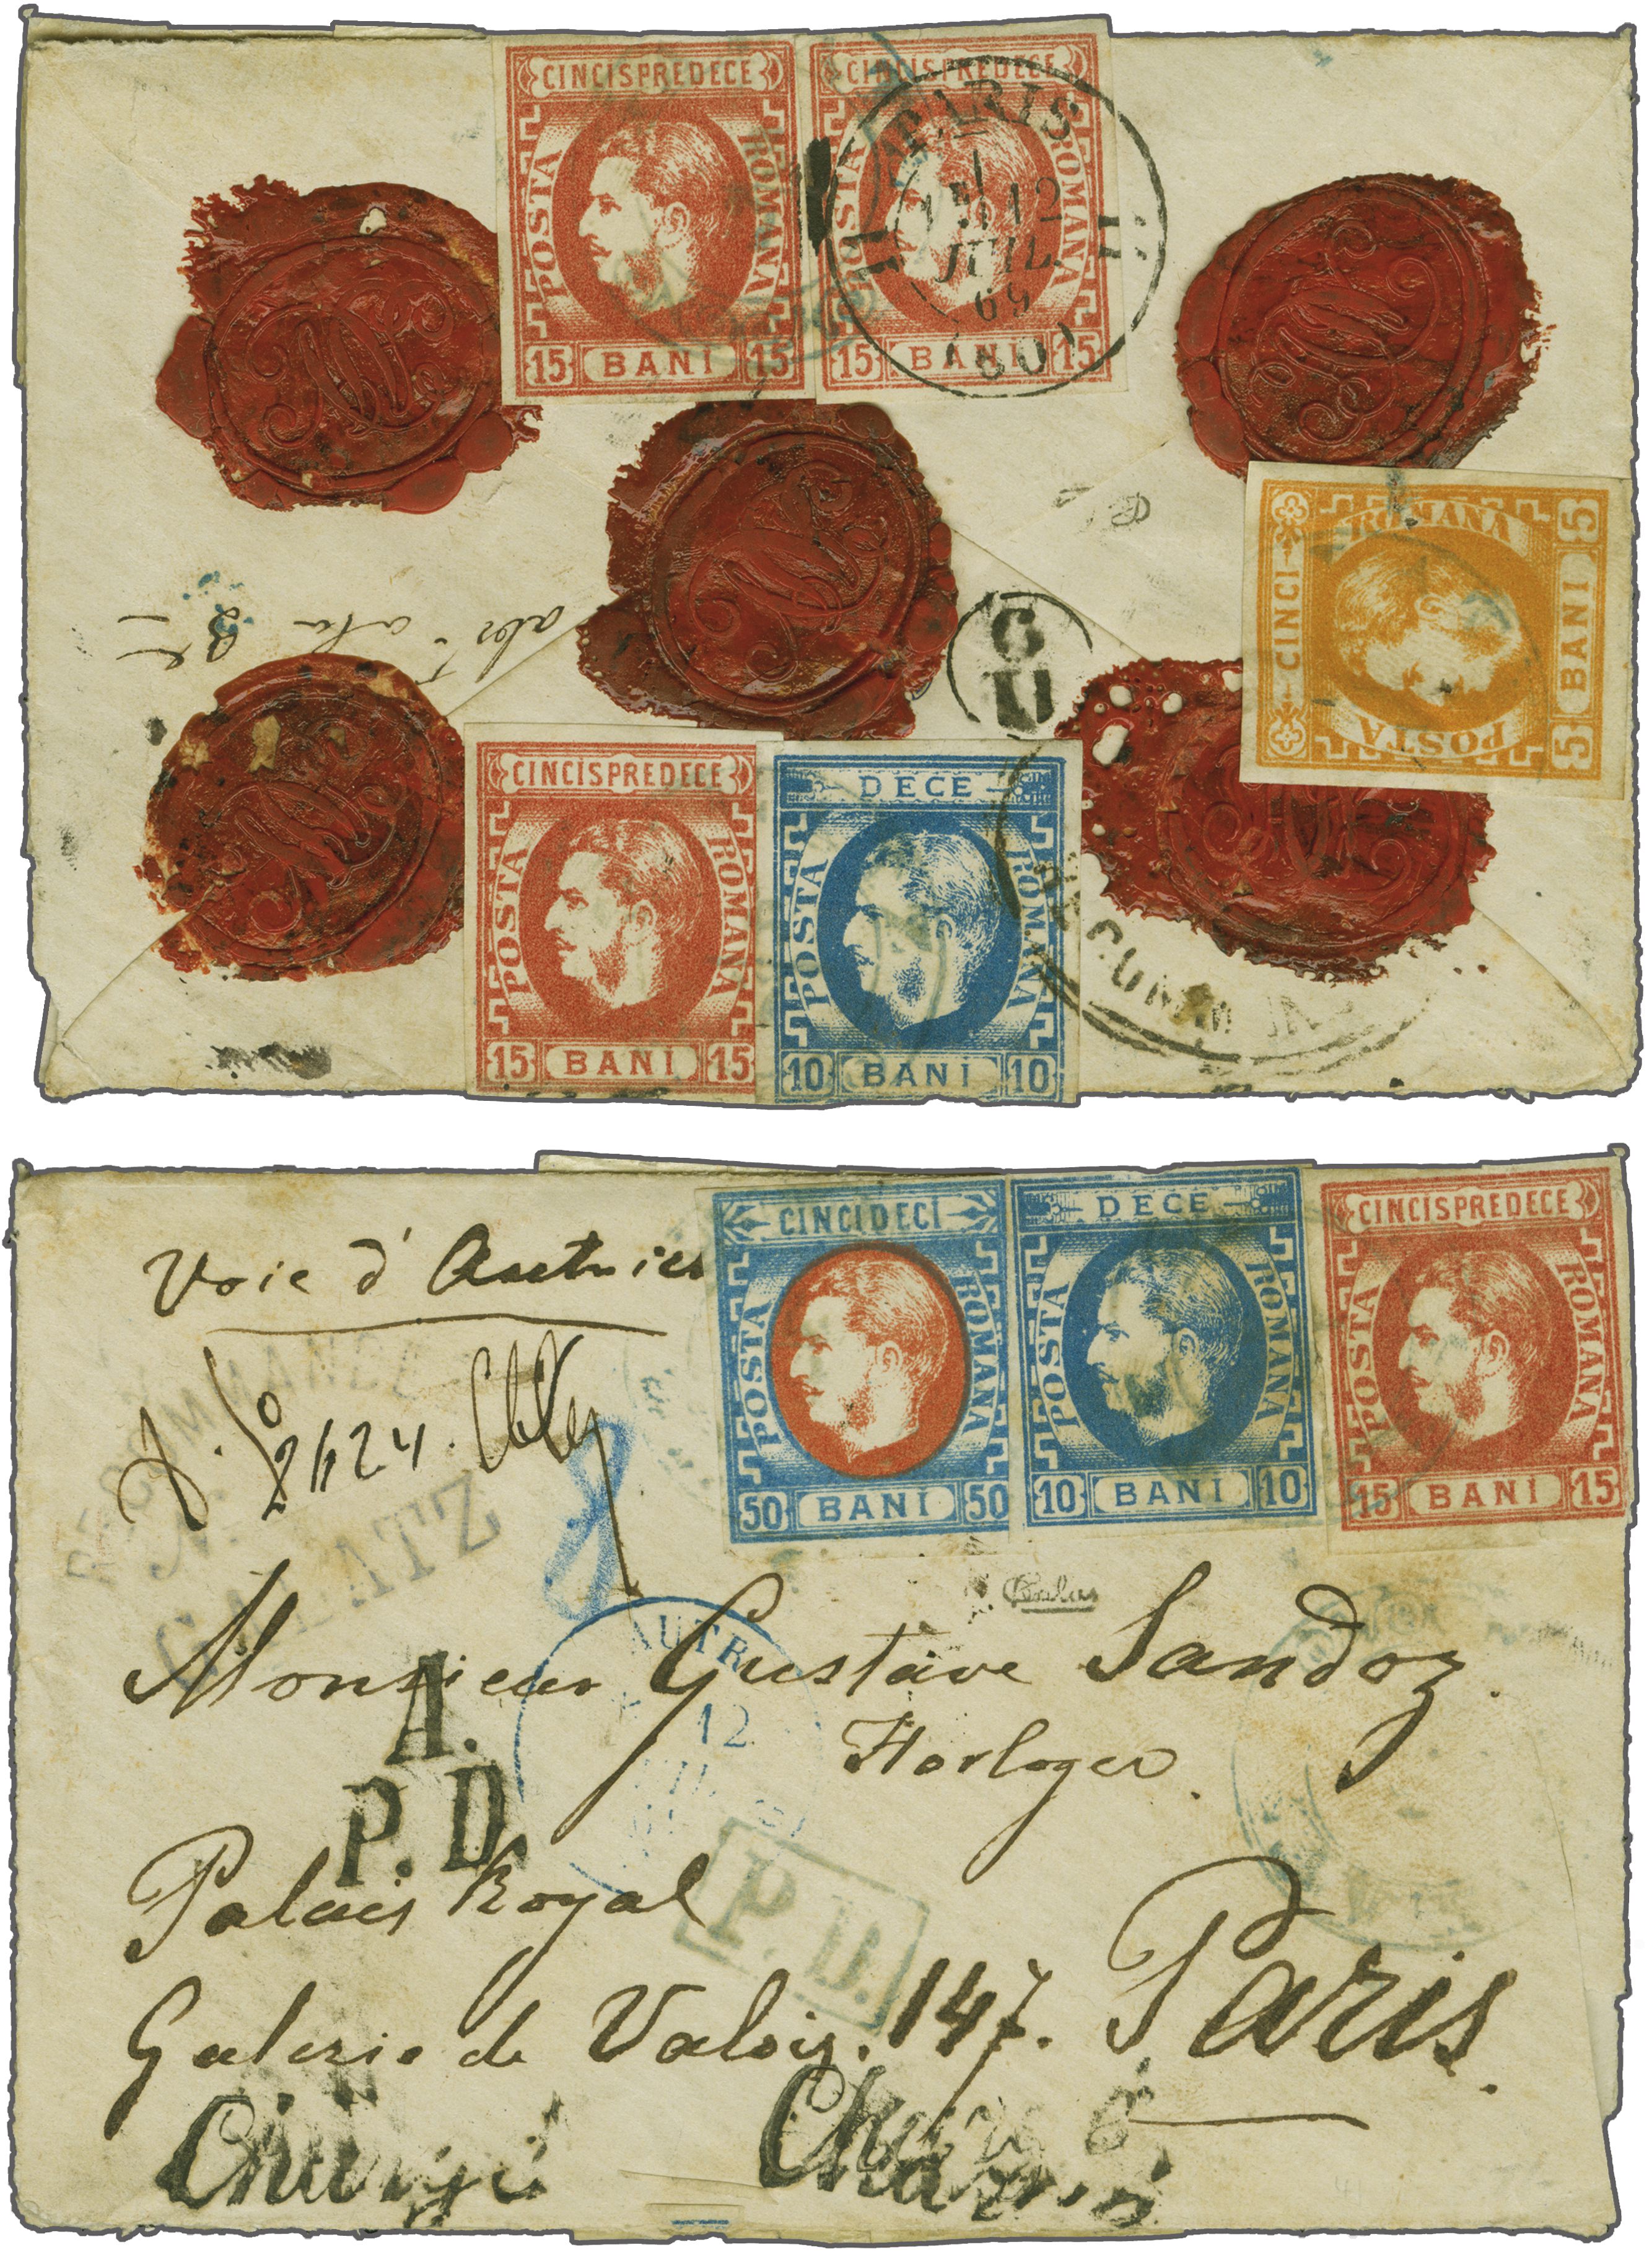 CINCISPREDECE
POSTA ROMANA
15 BANI 15
CINCISPREDECE
POSTA ROMANA
15 BANI 15
PARIS
12
JUIL
69
(60)
CINCI
POSTA ROMANA
5 BANI 5
G
U
CINCISPREDECE
POSTA ROMANA
15 BANI 15
DECE
POSTA ROMANA
10 BANI 10
Voie d'Autriche
CINCIDECI
POSTA ROMANA
50 BANI 50
DECE
POSTA ROMANA
10 BANI 10
CINCISPREDECE
POSTA ROMANA
15 BANI 15
RECOMMANDÉ
GALATZ
8
Monsieur Gustave Sandoz.
AUTR
12
Horloger.
A.
P.D.
Palais Royal
P.D.
Galerie de Valois. 147. Paris.
Chargé Chargé